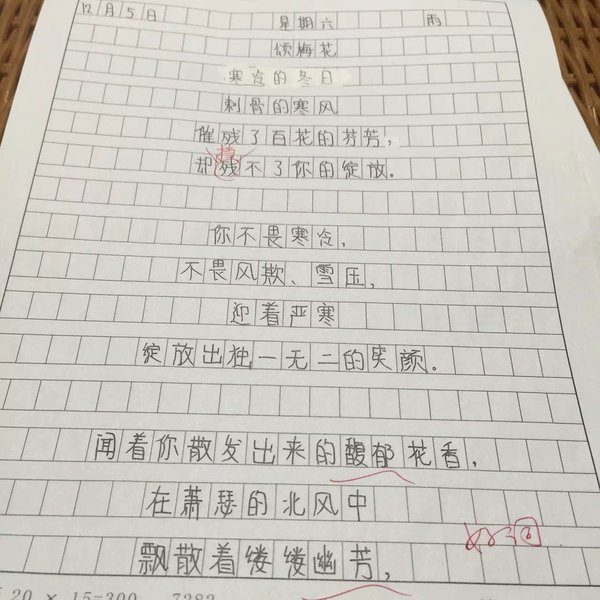 12月5日 星期六 雨
颂梅花
寒冷的冬日
刺骨的寒风
催残了百花的芬芳，
却残不了你的绽放。
你不畏寒冷，
不畏风欺、雪压，
迎着严寒
绽放出独一无二的笑颜。
闻着你散发出来的馥郁花香，
在萧瑟的北风中
飘散着缕缕幽芳，
20 × 15=300 7282